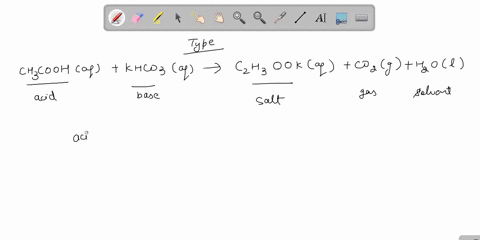 Type
CH₃COOH (aq) + KHCO₃ (aq) → C₂H₃OOK (aq) + CO₂ (g) + H₂O (l)
acid base salt gas solvent
aci